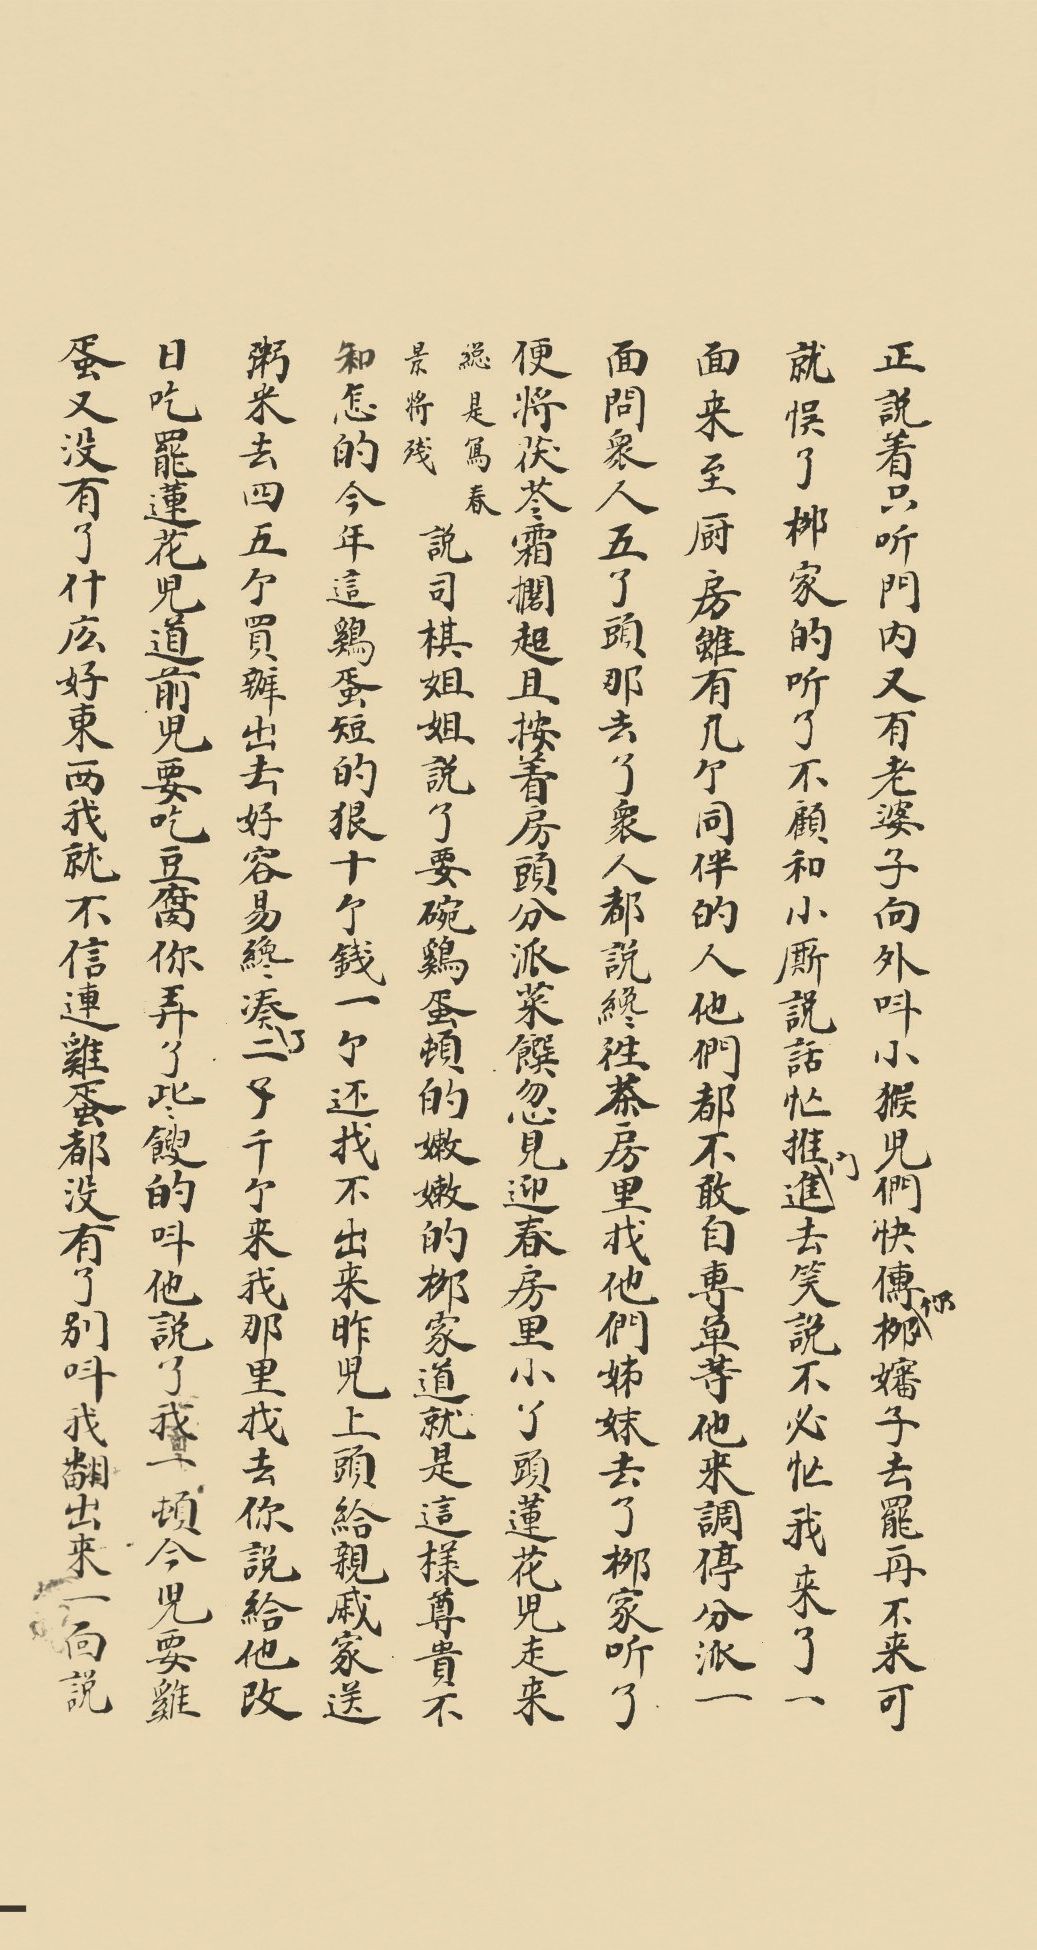 正說着只听門内又有老婆子向外呌小猴児們快傳你柳嬸子去罷再不来可
就悞了柳家的听了不顧和小厮說話忙推門進去笑說不必忙我来了一
面来至厨房雖有几个同伴的人他們都不敢自專单等他来調停分派一
面問衆人五了頭那去了衆人都說纔徃茶房里找他們姊妹去了柳家听了
便將茯苓霜擱起且按着房頭分派菜饌忽見迎春房里小丫頭蓮花児走来
總是寫春
景將残
說司棋姐姐說了要碗鷄蛋頓的嫩嫩的柳家道就是這樣尊貴不
知怎的今年這鷄蛋短的狠十个錢一个还找不出来昨児上頭給親戚家送
粥米去四五个買辦出去好容易纔湊了二千个来我那里找去你說給他改
日吃罷蓮花児道前児要吃豆腐你弄了些餿的呌他說了我一頓今児要雞
蛋又没有了什庅好東西我就不信連雞蛋都没有了别呌我翻出来一向說